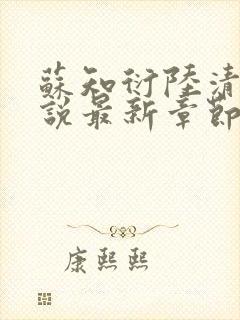 蘇知衍陸清
說最新章節
康熙熙